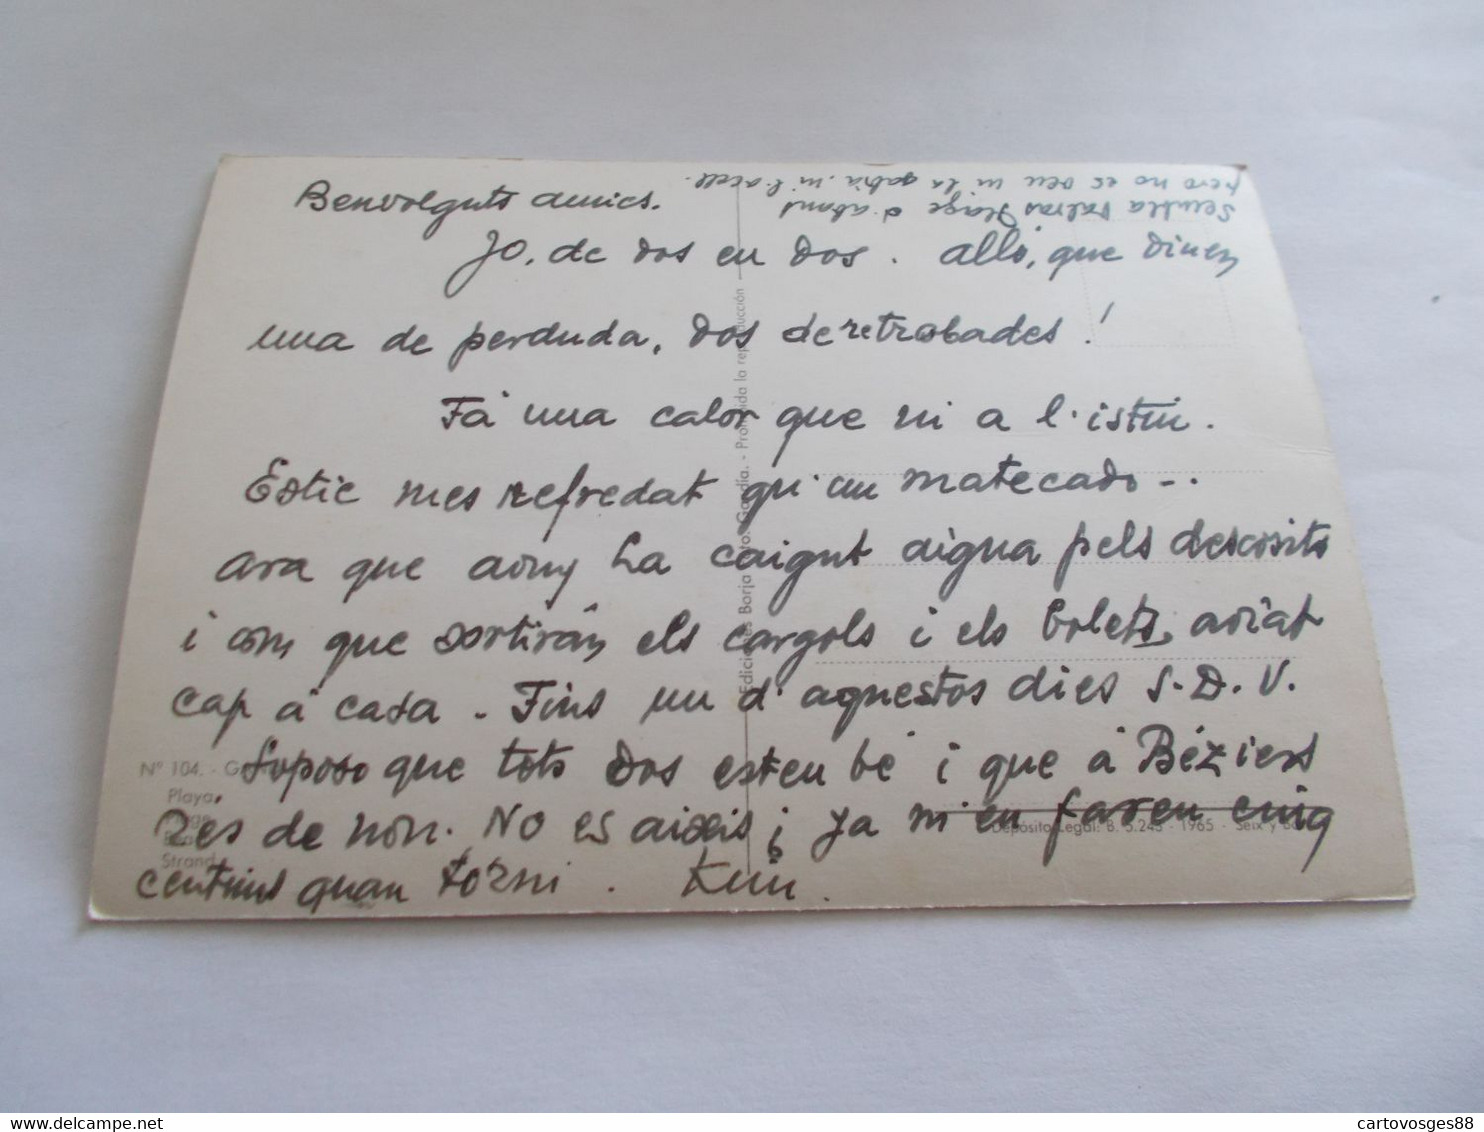 Benvolguts amics.
Jo, de dos en dos. allò, que diuen
una de perduda, dos de retrobades!
Fá una calor que ni a l'istiu.
Estic mes refredat qu'un matecado -.
ara que avuy ha caigut aigua pels descosits
i com que sortirán els cargols i els bolets, aviat
cap á casa. Fins un d'aquestos dies S.D.V.
Suposo que tots dos esteu bé i que á Béziers
res de nou. No es aixis; ja m'en fareu cinq
centims quan torni. Kim.
Sembla Valras Plage d'abans
pero no es veu ni la gabia ni l'aucell.
Nº 104. - G
Playa
Plage
Strand
Ediciones Borja Gandía. - Prohibida la reproducción
Depósito Legal: B. 5.243 - 1965 - Seix y
cartovosges88